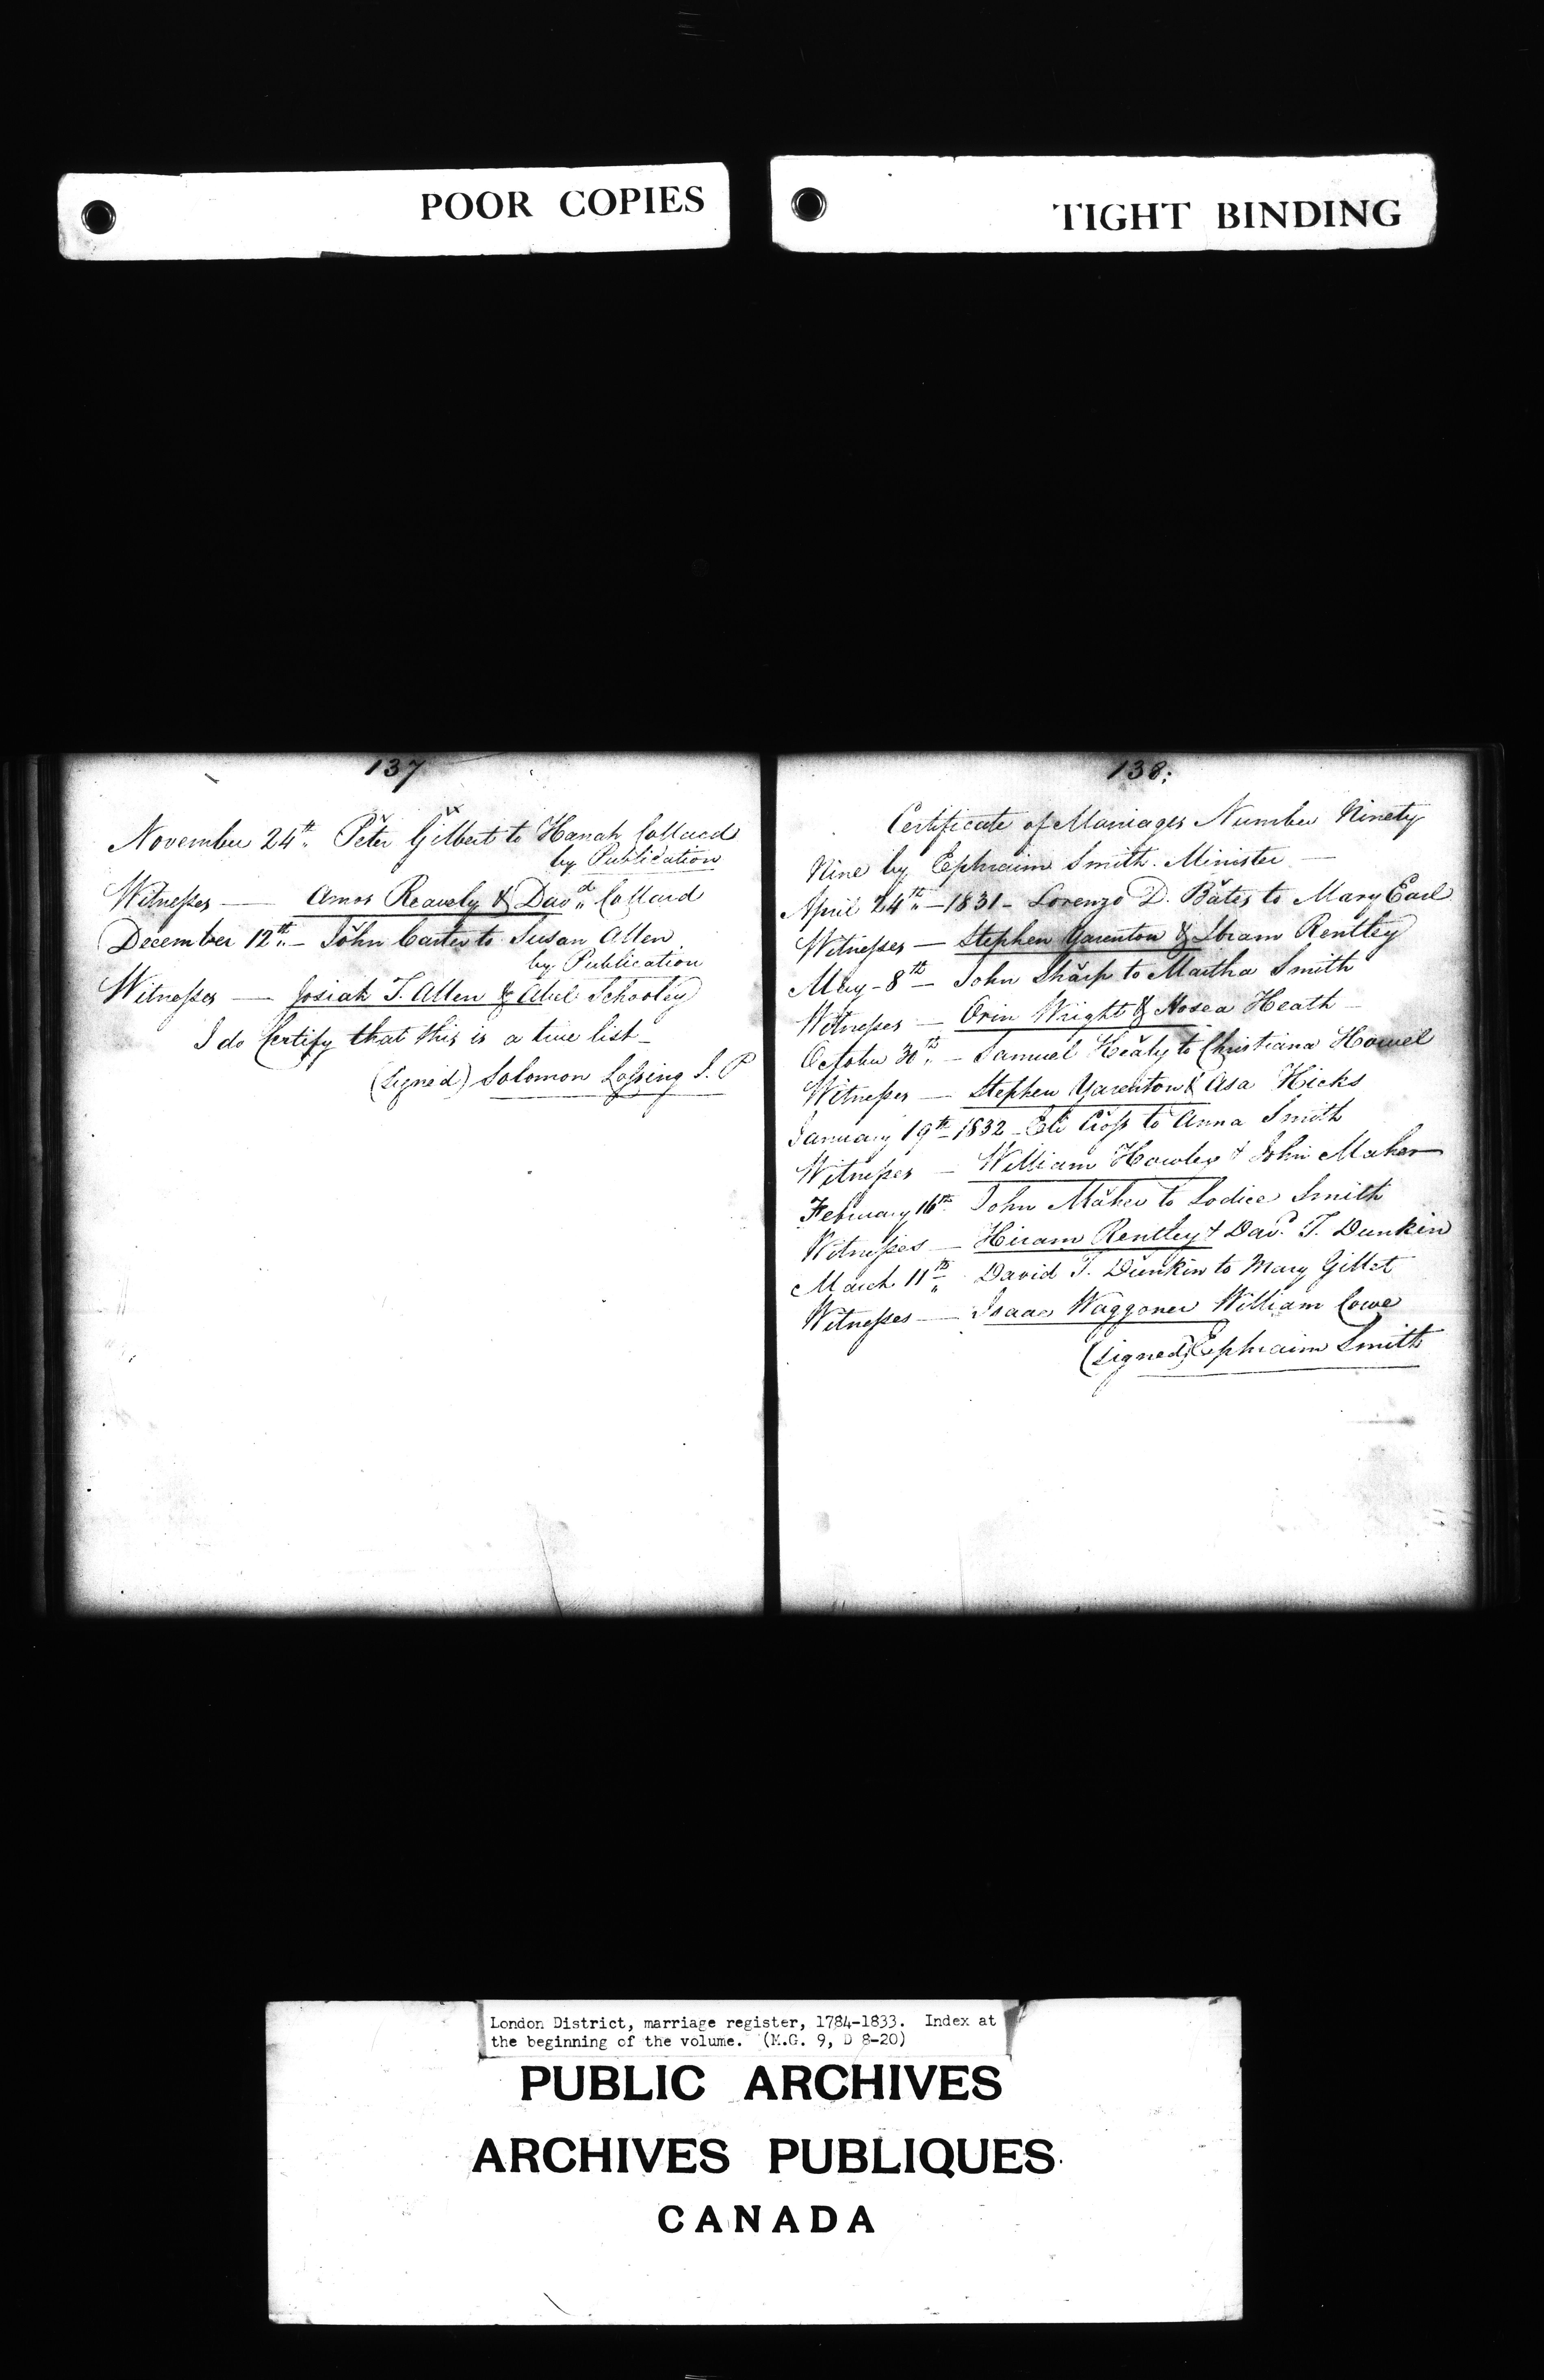 POOR COPIES
TIGHT BINDING
137
November 24th Peter Gilbert to Hanah Collard
by Publication
Witnesses — Amos Reavely & Davd Collard
December 12th — John Carter to Susan Allen
by Publication
Witnesses — Josiah T. Allen & Schooley
I do Certify that this is a true list —
(Signed) Solomon Lossing J. P
138:
Certificate of Marriages Number Ninety
Nine by Ephraim Smith. Minister —
April 24th — 1831 — Lorenzo D. Bates to Mary Earl
Witnesses — Stephen Yarenton & Rentley
May — 8th — John Sharp to Martha Smith
Witnesses — Orin Wright & Hosea Heath —
October 30th — Samuel Healy to Christiana Howel
Witnesses — Stephen Yarenton & Asa Hicks
January 19th 1832 — Eli Cross to Anna Smith
Witnesses — William Howley & John Maher
February 16th John Maher to Lodice Smith
Witnesses — Hiram Rentley & Davd. T. Dunkin
March 11th David T. Dunkin to Mary Gillet
Witnesses — Isaac Waggoner William Cowe
(Signed) Ephraim Smith
London District, marriage register, 1784-1833. Index at
the beginning of the volume. (M.G. 9, D 8-20)
PUBLIC ARCHIVES
ARCHIVES PUBLIQUES
CANADA